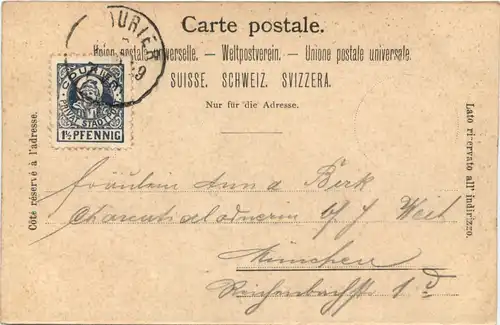 Carte postale.
Union postale universelle. – Weltpostverein. – Unione postale universale.
SUISSE. SCHWEIZ. SVIZZERA.
Nur für die Adresse.
COURIER
PRIVAT STADTPOST
1½ PFENNIG
Côté réservé à l'adresse.
Lato riservato all' indirizzo.
Fräulein Anna Berk
b/ J Weil
München
Reichenbachstr 1